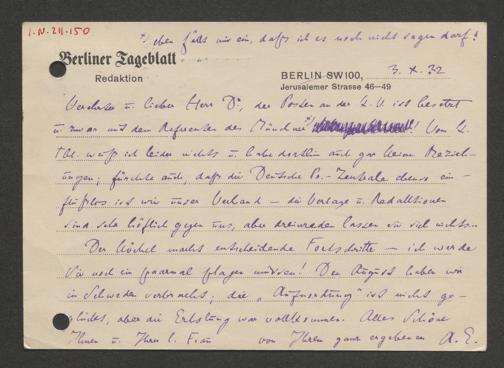 I.N. 211.150
*) eben fällt mir ein, daß ich es noch nicht sagen darf!
Berliner Tageblatt
Redaktion
BERLIN SW100, 3. X. 32
Jerusalemer Strasse 46-49
Verehrter u. lieber Herr Dr, der Posten an der L. U. ist besetzt
u. zwar mit dem Referenten der Münchner *) Vom
Tbl. weiß ich leider nichts u. habe dorthin auch gar keine Bezieh-
ungen; fürchte auch, daß die Deutsche Zentrale ebenso ein-
flußlos ist wie unser Verband – die Verlage u. Redaktionen
sind sehr höflich gegen uns, aber dreinreden lassen sie sich nichts.
Der macht entscheidende Fortschritte – ich werde
Sie noch ein paarmal plagen müssen! Den August haben wir
in Schweden verbracht; die „ " ist nicht ge-
glückt, aber die Erholung war vollkommen. Alles Schöne
Ihnen u. Ihrer l. Frau von Ihrem ganz ergebenen A. E.